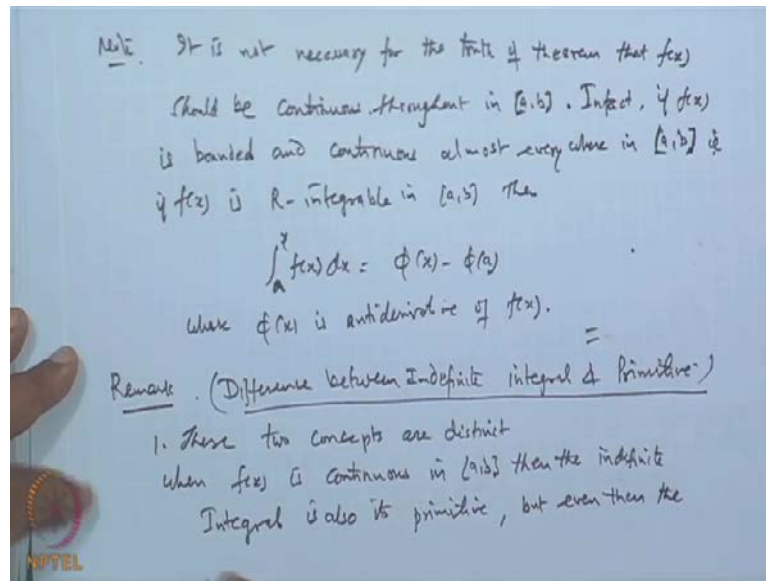 Note. It is not necessary for the truth of theorem that f(x)
should be continuous throughout in [a,b]. Infact, if f(x)
is bounded and continuous almost every where in [a,b] ie
if f(x) is R-integrable in [a,b] then
∫_a^x f(x) dx = ϕ(x) - ϕ(a)
where ϕ(x) is antiderivative of f(x).
Remark. (Difference between Indefinite integral & Primitive)
1. These two concepts are distinct
when f(x) is continuous in [a,b] then the indefinite
Integral is also its primitive, but even then the
NPTEL